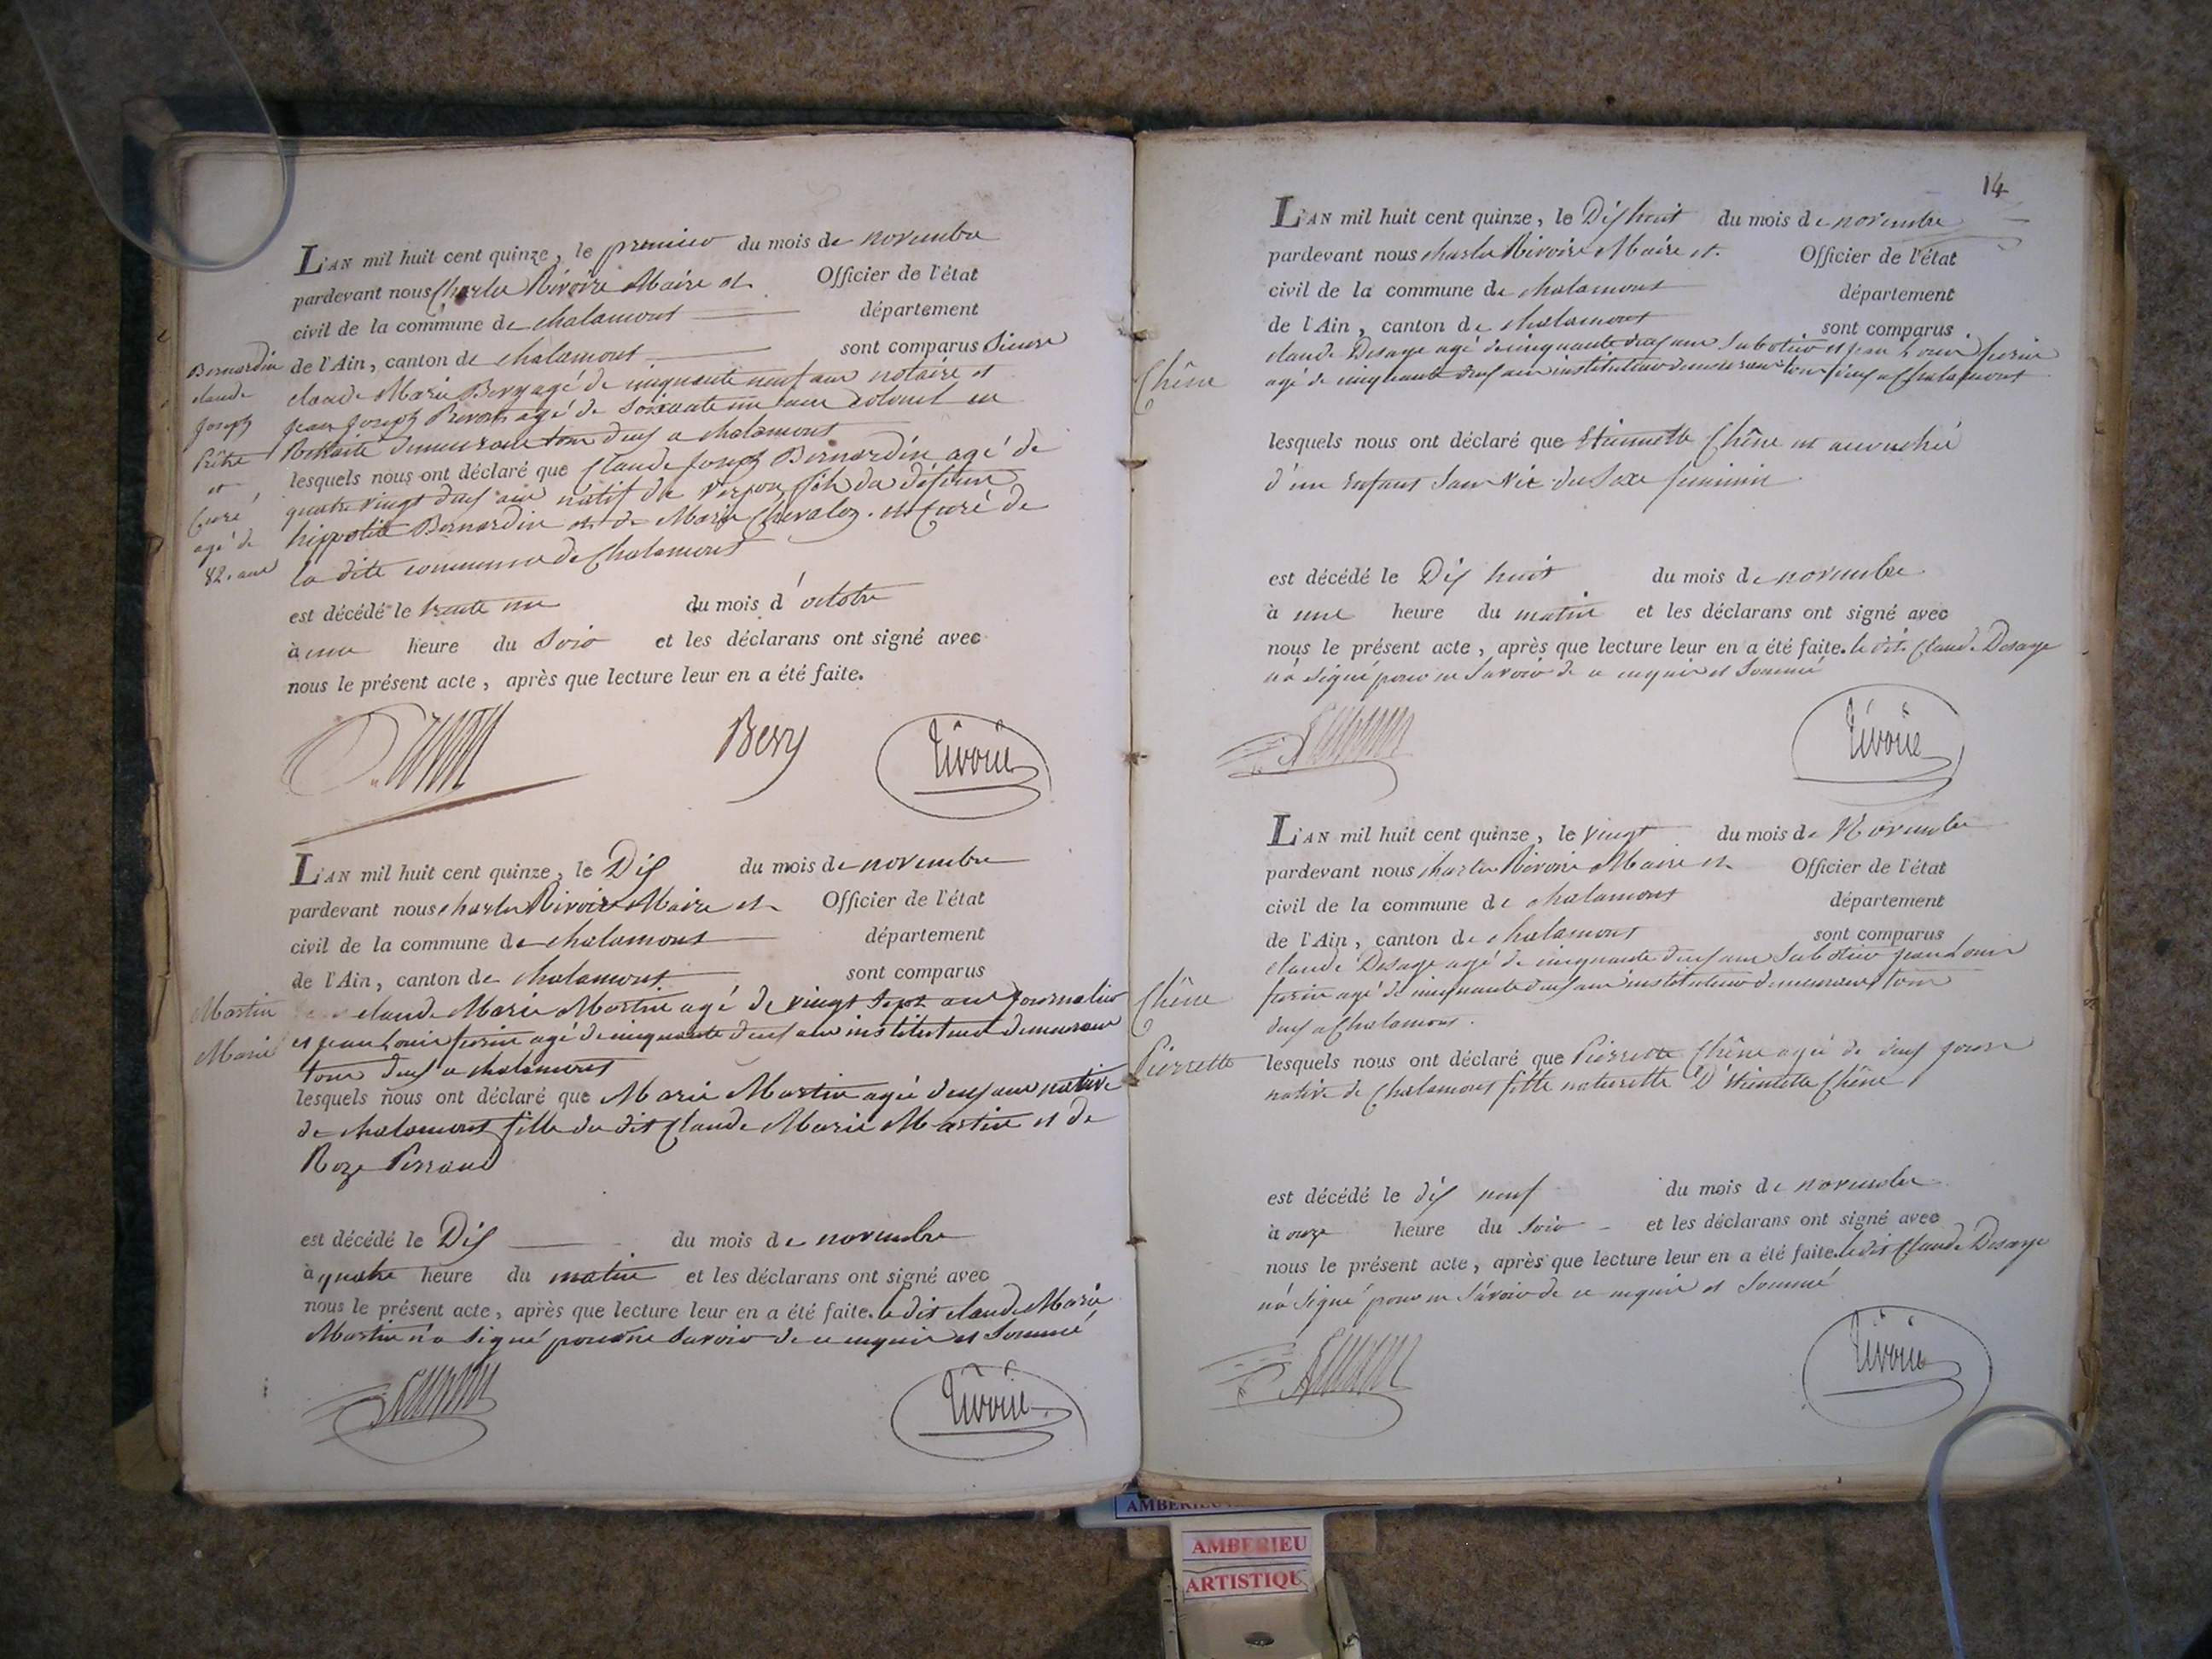 L'AN mil huit cent quinze, le premier du mois de novembre
pardevant nous Charles Rivoire Maire et Officier de l'état
civil de la commune de chalamont département
de l'Ain, canton de chalamont sont comparus Sieurs
claude Marie Bery agé de cinquante neuf ans notaire et
jean joseph agé de soixante un ans colonel en
Retraite demeurant tous deux a chalamont
lesquels nous ont déclaré que Claude joseph Bernardin agé de
quatre vingt deux ans natif de fils du défunt
hippolite Bernardin et de Marie Chevalon et Curé de
la dite commune de Chalamont
est décédé le trente un du mois d'octobre
à une heure du Soir et les déclarans ont signé avec
nous le présent acte, après que lecture leur en a été faite.
Bernardin
claude
joseph
Prêtre
et
Curé
agé de
82. ans
Bery Rivoire
L'AN mil huit cent quinze, le Dix du mois de novembre
pardevant nous charles Rivoire Maire et Officier de l'état
civil de la commune de chalamont département
de l'Ain, canton de chalamont sont comparus
claude Marie Martin agé de vingt Sept ans journalier
et jean Louis perin agé de cinquante deux ans instituteur demeurant
tous deux a chalamont
lesquels nous ont déclaré que Marie Martin agée deux ans native
de chalamont fille du dit Claude Marie Martin et de
Roze Perraud
est décédé le Dix du mois de novembre
à quatre heure du matin et les déclarans ont signé avec
nous le présent acte, après que lecture leur en a été faite. le dit claude Marie
Martin n'a signé pour ne savoir de ce enquis et sommé
Martin
Marie
Rivoire
14
L'AN mil huit cent quinze, le Dix huit du mois de novembre
pardevant nous charles Rivoire Maire et Officier de l'état
civil de la commune de chalamont département
de l'Ain, canton de chalamont sont comparus
claude Desaye agé de cinquante deux ans Sabotier et jean Louis perin
agé de cinquante deux ans instituteur demeurant tous deux a Chalamont
Chêne
lesquels nous ont déclaré que Etiennette Chêne est accouchée
d'un Enfant Sans Vie du Sexe feminin
est décédé le Dix huit du mois de novembre
à une heure du matin et les déclarans ont signé avec
nous le présent acte, après que lecture leur en a été faite. le dit Claude Desaye
n'a signé pour ne savoir de ce enquis et sommé
Rivoire
L'AN mil huit cent quinze, le vingt du mois de Novembre
pardevant nous charles Rivoire Maire et Officier de l'état
civil de la commune de chalamont département
de l'Ain, canton de chalamont sont comparus
claude Desaye agé de cinquante deux ans Sabotier jean Louis
perin agé de cinquante deux ans instituteur demeurant tous
deux a Chalamont.
Chêne
Pierrette
lesquels nous ont déclaré que Pierrette Chêne agée de deux jours
native de Chalamont fille naturelle D'Etiennette Chêne
est décédé le dix neuf du mois de novembre
à onze heure du soir et les déclarans ont signé avec
nous le présent acte, après que lecture leur en a été faite. le dit Claude Desaye
n'a signé pour ne savoir de ce enquis et sommé
Rivoire
AMBERIEU
ARTISTIQU